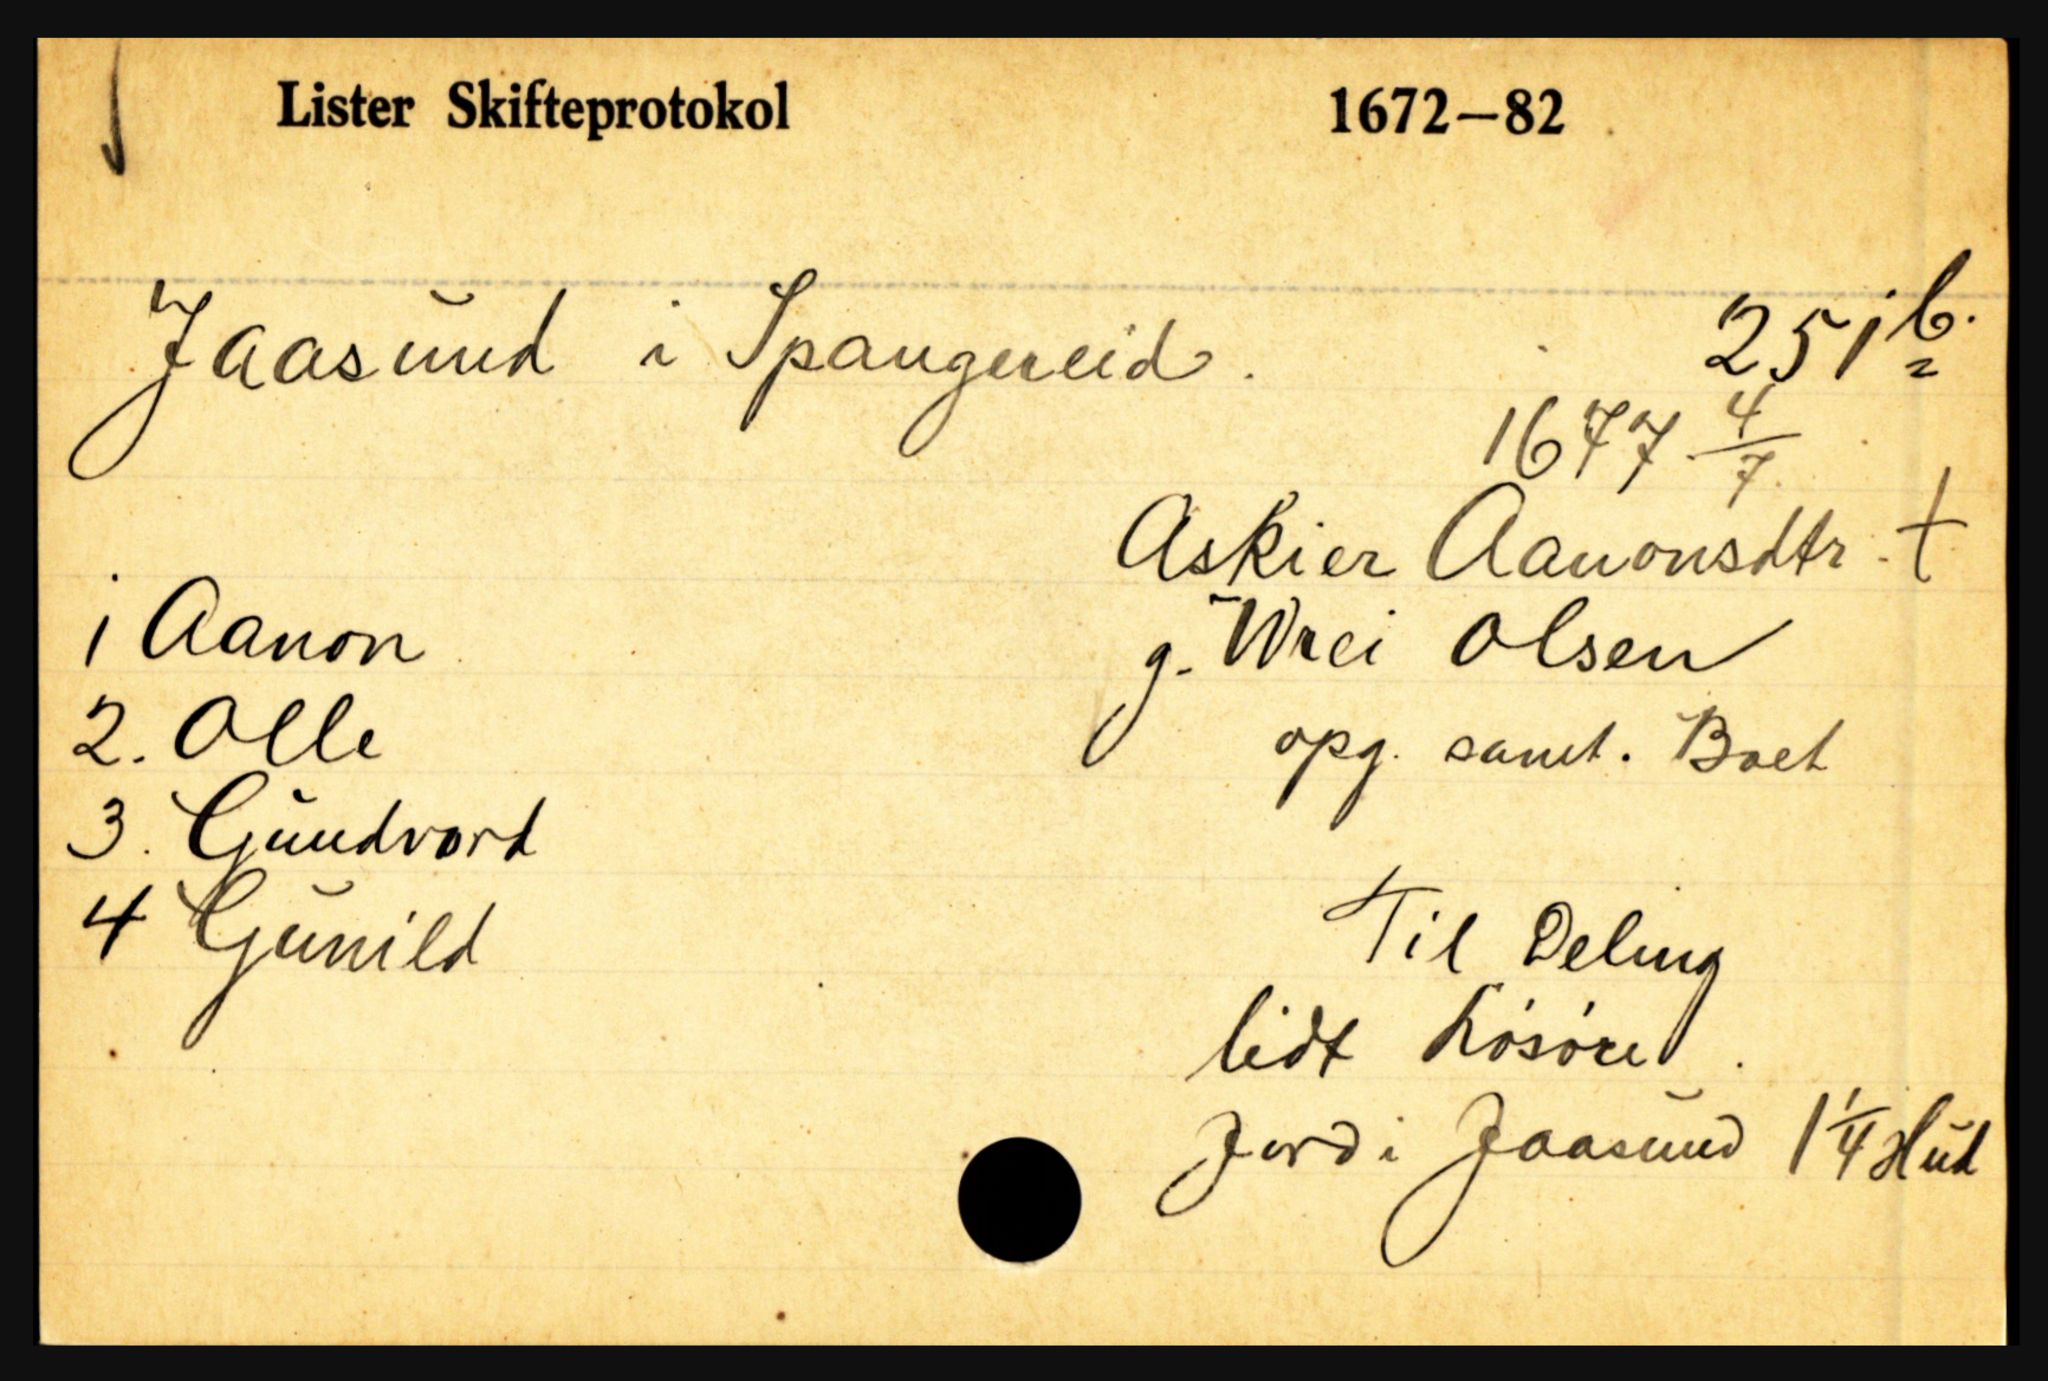 Lister Skifteprotokol 1672—82
Jaasund i Spangereid. 251 b.
1677 4/7
Askier Aanonsdtr. †
1 Aanon
g. Wrei Olsen
2. Olle
opg. samt. Boet
3. Gundvord
4 Gunild
Til Deling
lidt Lösöre.
Jord i Jaasund 1 1/4 Hud